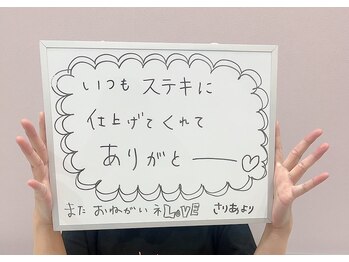 いつも ステキに
仕上げてくれて
ありがとー♡
また おねがいネ LOVE さりあより